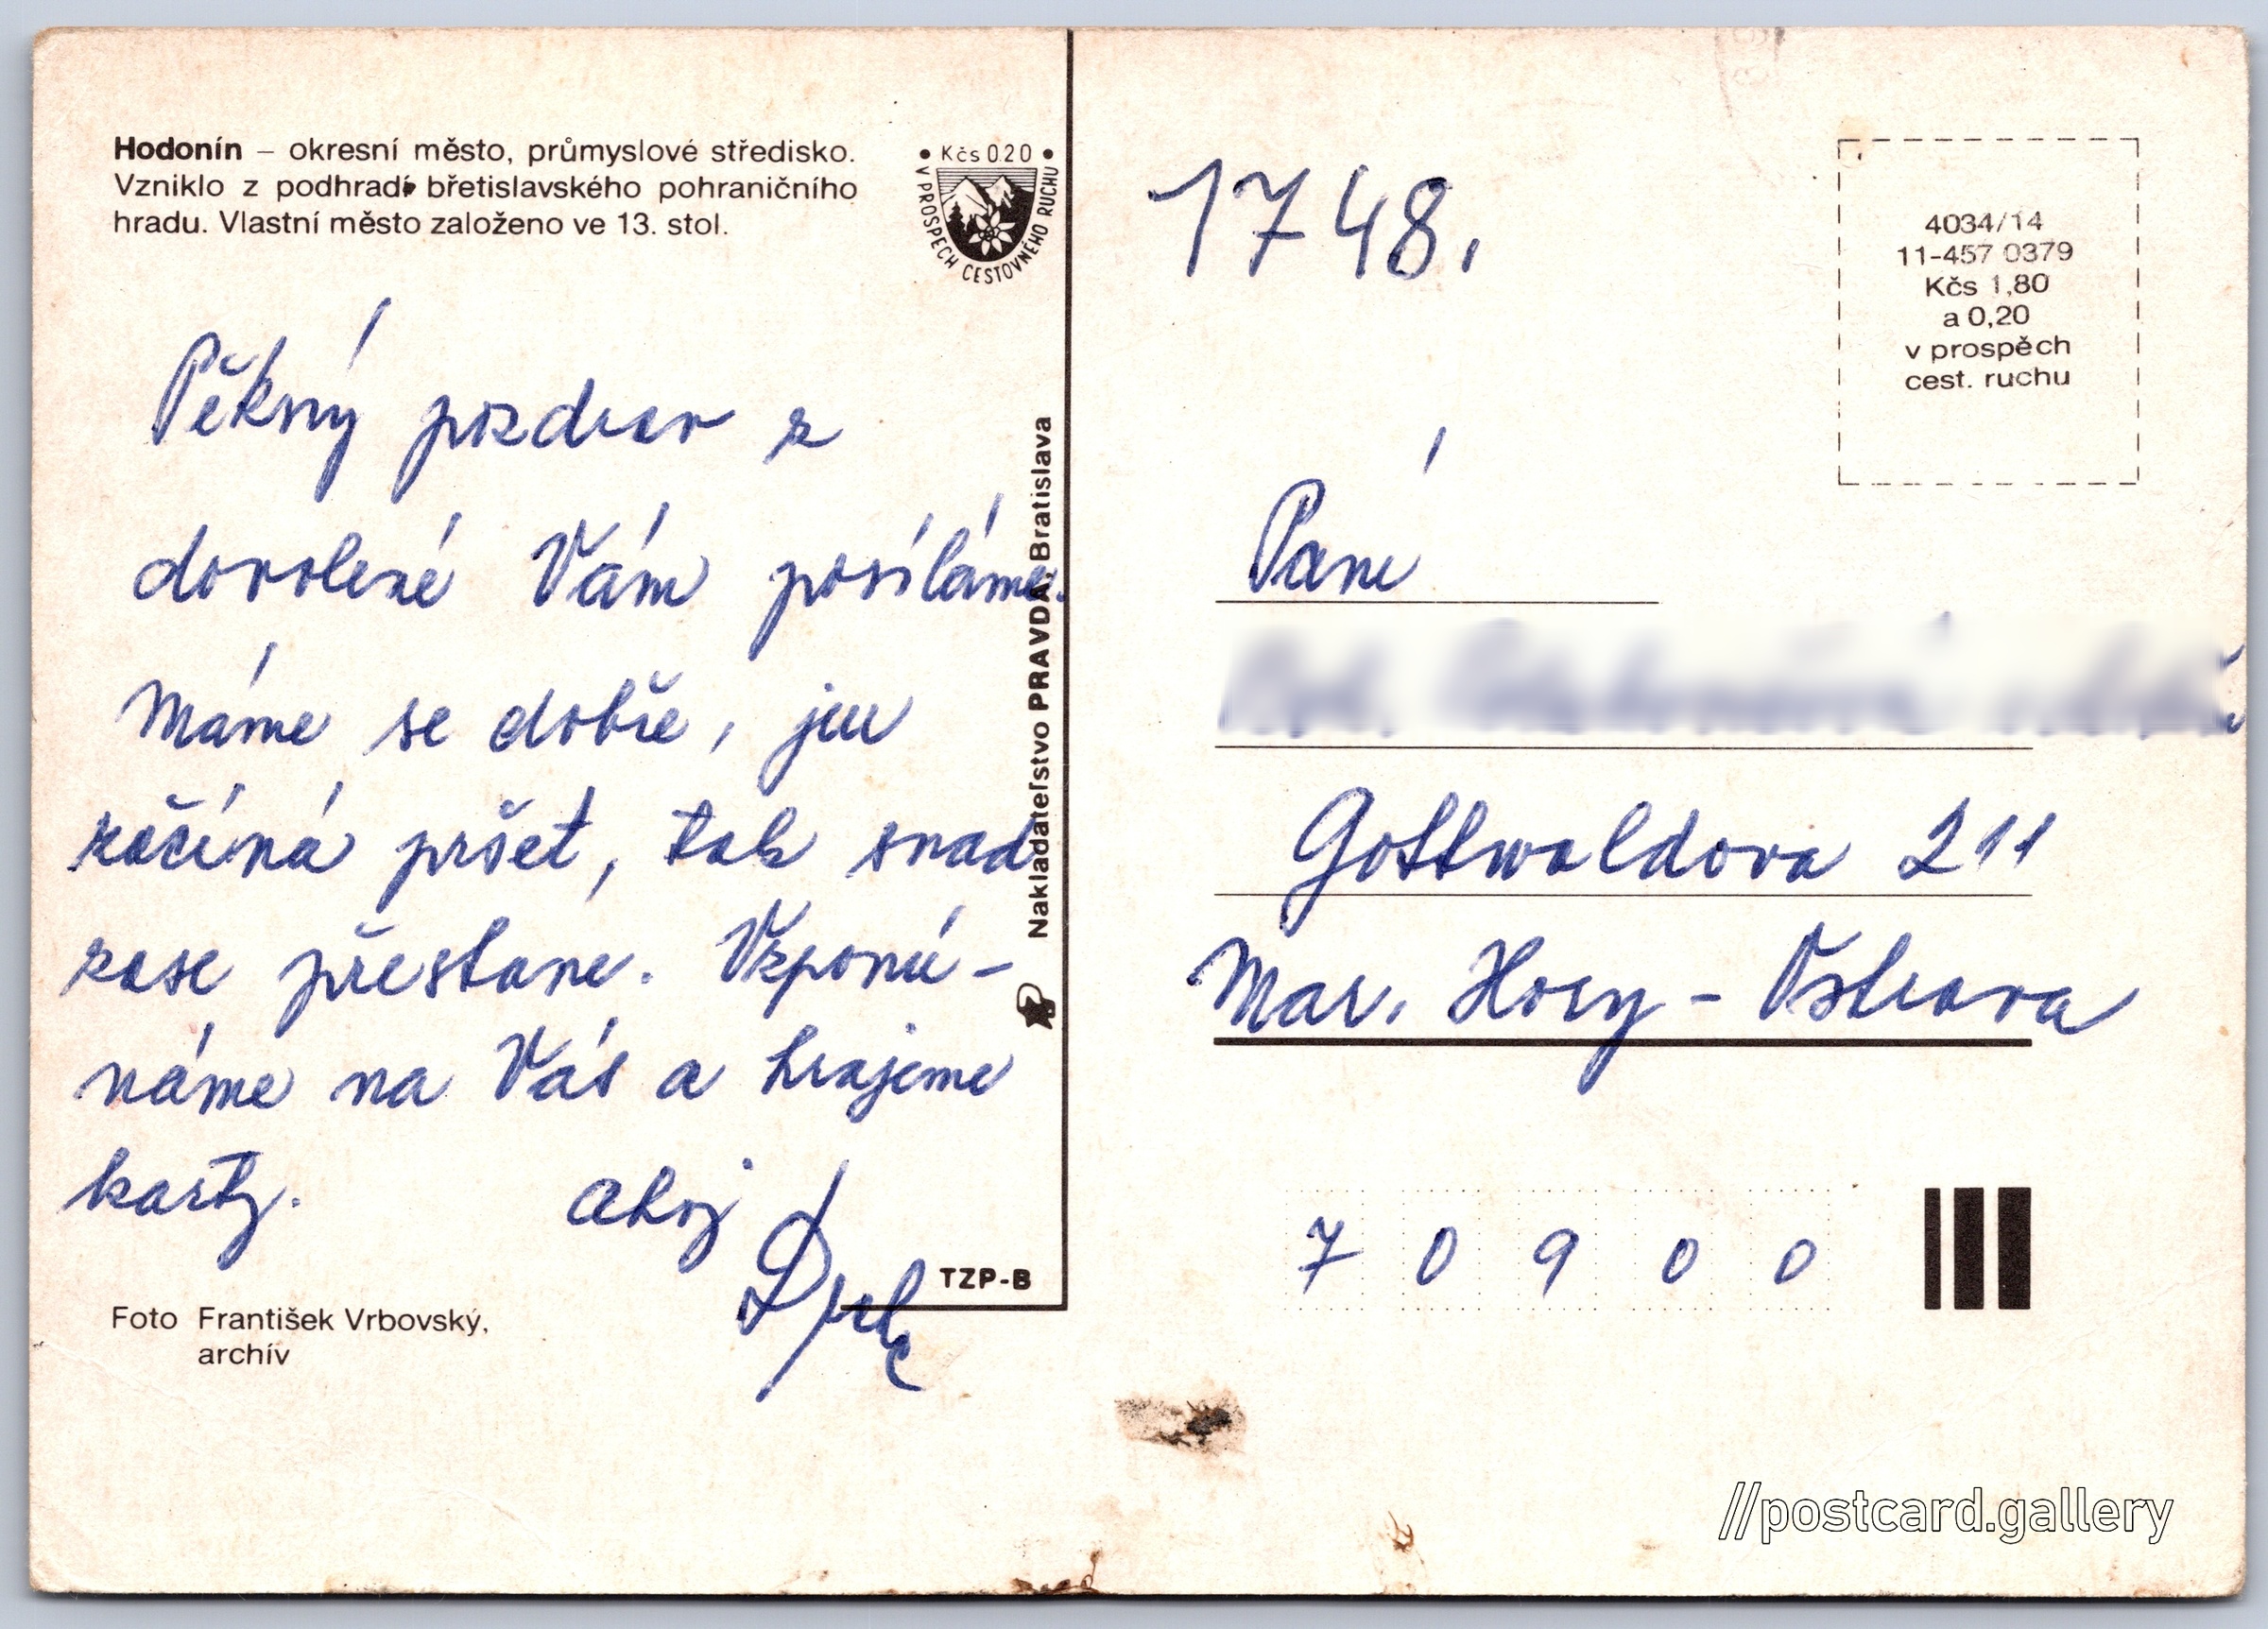 Hodonín – okresní město, průmyslové středisko.
Vzniklo z podhradí břetislavského pohraničního
hradu. Vlastní město založeno ve 13. stol.
• Kčs 0.20 •
V PROSPĚCH CESTOVNÉHO RUCHU
Pěkný pozdrav z
dovolené Vám posíláme.
Máme se dobře, jen
začíná pršet, tak snad
zase přestane. Vzpomí-
náme na Vás a hrajeme
karty. ahoj
TZP-B
Foto František Vrbovský,
archív
Nakladateľstvo PRAVDA, Bratislava
1748.
4034/14
11-457 0379
Kčs 1,80
a 0,20
v prospěch
cest. ruchu
Paní
Gottwaldova 211
Mar. Hory - Ostrava
7 0 9 0 0
//postcard.gallery